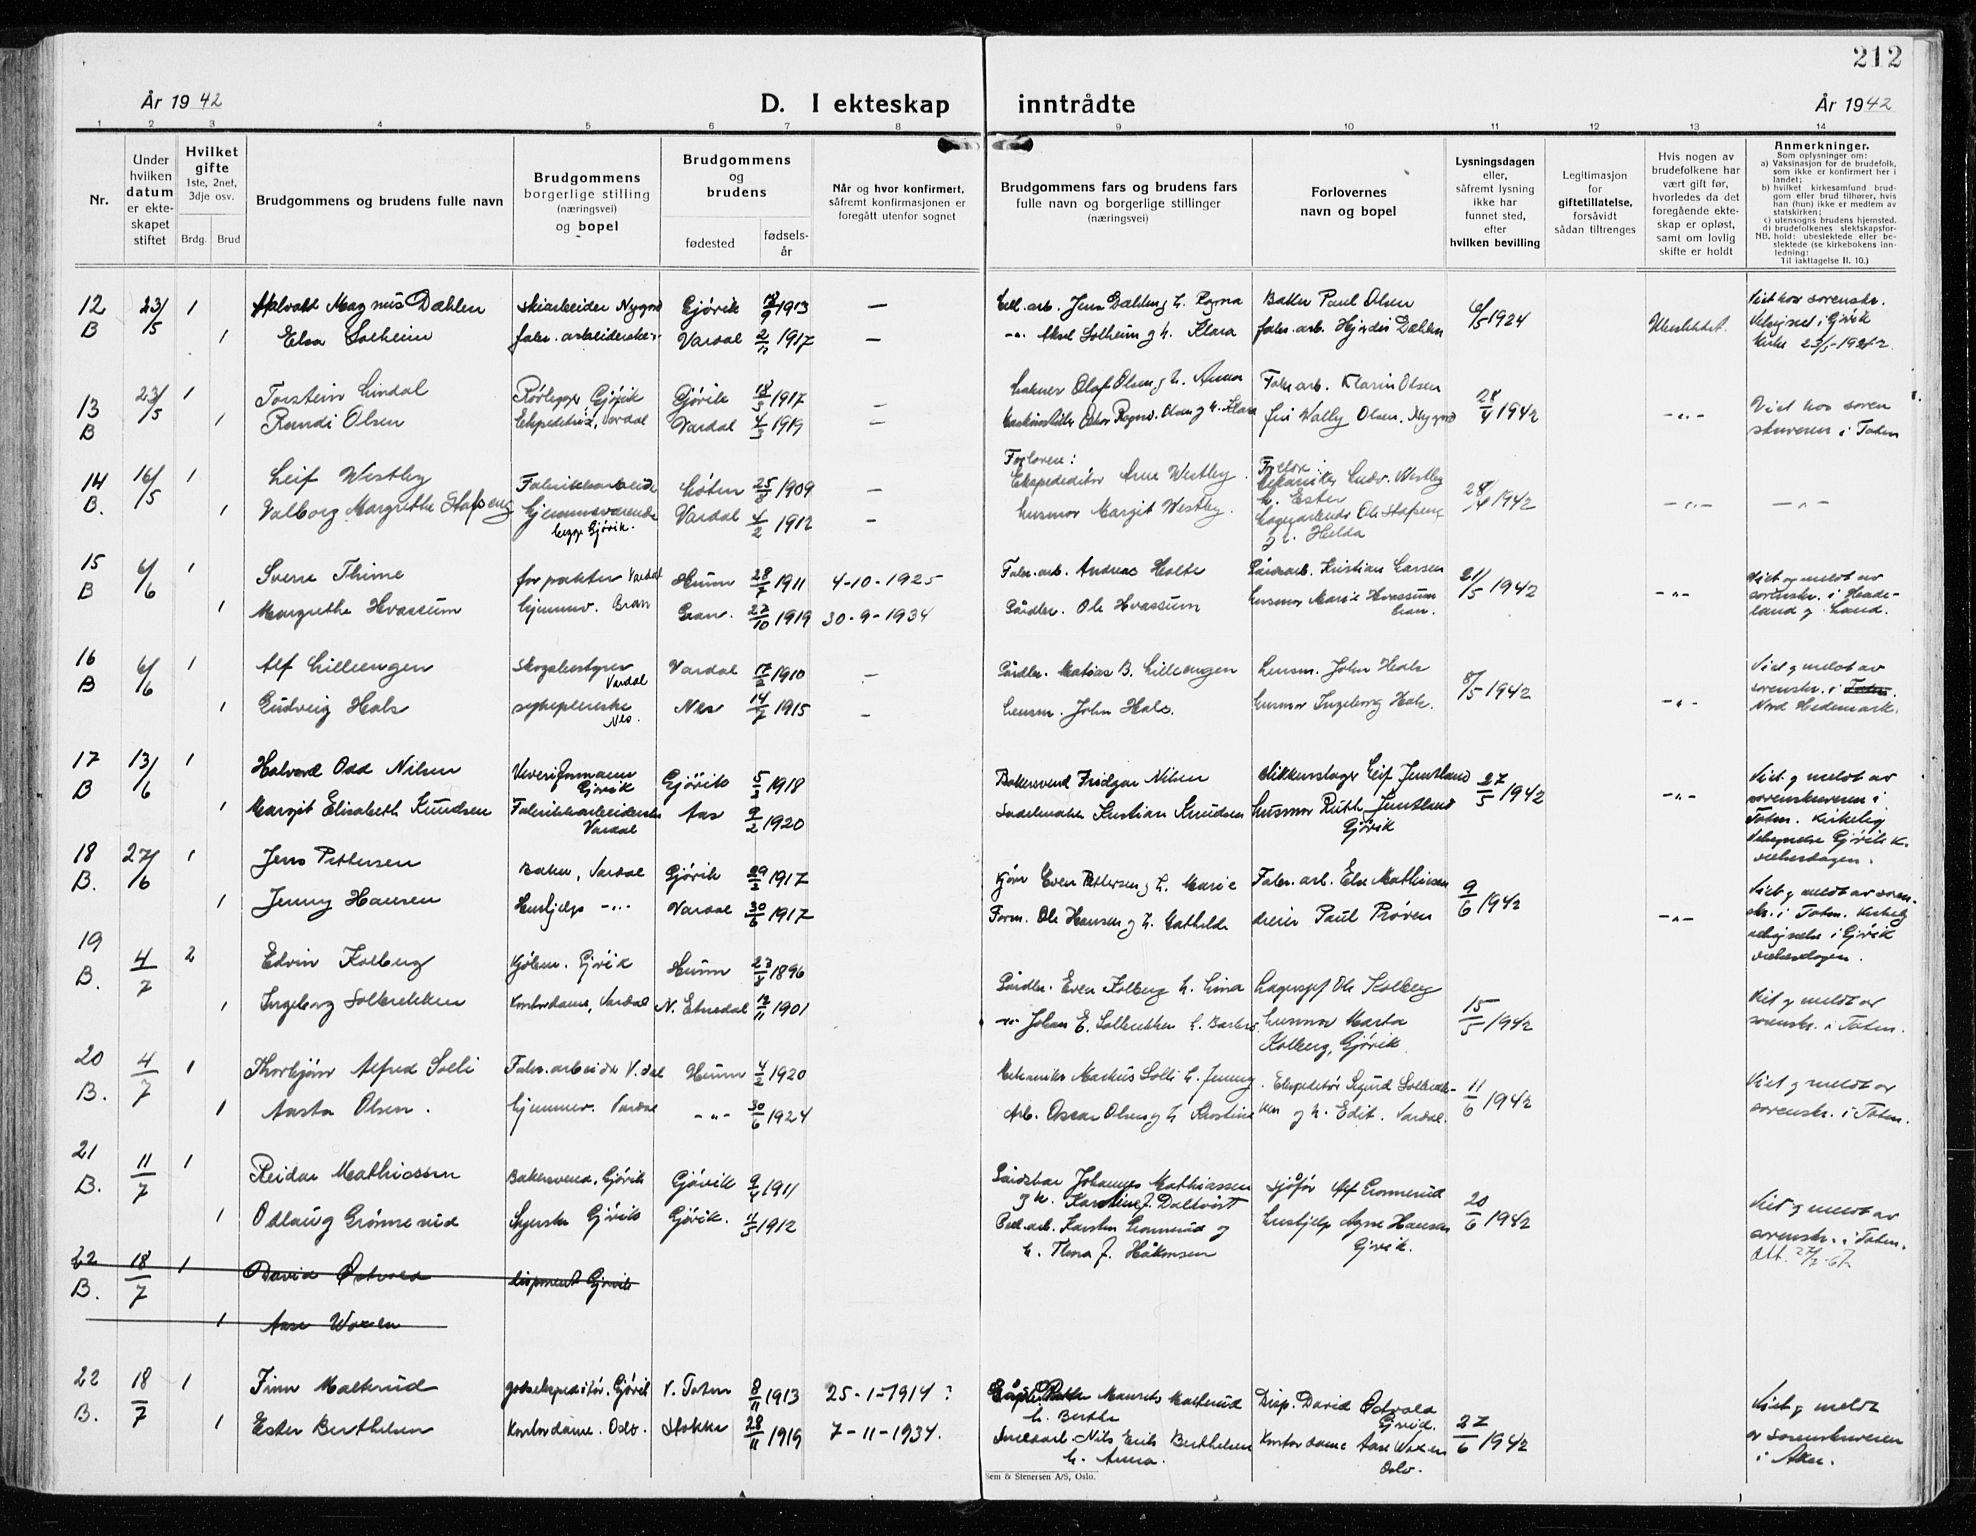 212
År 1942
D. I ekteskap inntrådte
År 1942
1 2 3 4 5 6 7 8 9 10 11 12 13 14
Nr.
Under hvilken datum er ekteskapet stiftet
Hvilket gifte
1ste, 2net, 3dje osv.
Brdg. Brud
Brudgommens og brudens fulle navn
Brudgommens borgerlige stilling (næringsvei) og bopel
Brudgommens og brudens
fødested
fødselsår
Når og hvor konfirmert, såfremt konfirmasjonen er foregått utenfor sognet
Brudgommens fars og brudens fars fulle navn og borgerlige stillinger (næringsvei)
Forlovernes navn og bopel
Lysningsdagen eller, såfremt lysning ikke har funnet sted, efter hvilken bevilling
Legitimasjon for giftetillatelse, forsåvidt sådan tiltrenges
Hvis nogen av brudefolkene har vært gift før, hvorledes da det foregående ekteskap er opløst, samt om lovlig skifte er holdt
Anmerkninger.
Som oplysninger om:
a) Vaksinasjon for de brudefolk, som ikke er konfirmert her i landet;
b) hvilket kirkesamfund brudgom eller brud tilhører, hvis han (hun) ikke er medlem av statskirken;
c) utensogns brudens hjemsted.
d) brudefolkenes slektskapsforhold: ubeslektede eller beslektede (se kirkebokens innledning:
NB. Til iakttagelse II. 10.)
12 23/5 1 Halvald Magnus Dæhlen Gjøvik 1913 — Jens Dæhlen g h. Ragna Baker Paul Olsen 6/5 1924 Viet hos sorenskr.
B 1 Elsa Solheim Vardal 2/11 1917 — -"- Aksel Solheim g h. Klara fabr. arb. Hjørdis Dæhlen Ubeslektet. Velsignet i Gjøvik
Kirke 23/5-1942
13 23/5 1 Torstein Lindal Rørlegger Gjøvik Gjøvik 1917 — Olaf Olsen g h. Anna Fabr. arb. Klarin Olsen 28/4 1942 Viet hos soren
B 1 Randi Olsen Ekspeditrise, Vardal Vardal 4/3 1919 — Olsen g h. Klara frü Wally Olsen. Nygård -"- skriveren i Toten
14 16/5 1 Leif Westby Fabrikkarbeider Løten 25/8 1909 — Forlovere: Ekspeditør Arne Westby. Foreldre: Mekaniker Ludv. Westby h. Ester 28/4 1942 -"- -"-
B. 1 Valborg Margrethe Stafseng hjemmeværende begge Gjøvik. Vardal 4/2 1912 — husmor Margit Westby. Ole Stafseng g h. Helda
15 6/6 1 Sverre Thime forpakter Vardal Hunn 28/7 1911 4-10-1925 Fabr. arb. Andreas Holte Gårdsarb. Kristian Larsen 21/5 1942 Viet og meldt av
B 1 Margrethe Hvassum hjemmev. Gran Gran 1919 30-9-1934 Gårdbr. Ole Hvassum husmor Marie Hvassum Gran. -"- sorenskr. i Hadeland g Land.
16 6/6 1 Alf Lilleengen Skogbestyrer Vardal Vardal 17/2 1910 — Gårdbr. Matias B. Lilleengen Lensm. John Hals 8/5 1942 Viet g meldt av
B 1 Gudveig Hals sykepleierske Nes. Nes 14/7 1915 — Lensm. John Hals. husmor Ingeborg Hals. -"- sorenskr. i Toten. Nord Hedemark.
17 13/6 1 Halvard Odd Nilsen Veveriformann Gjøvik Gjøvik 1918 Bakersvend Fridgar Nilsen blikkenslager Leif Jemtland 27/5 1942 Viet g meldt av
B 1 Margit Elisabeth Knudsen Fabrikkarbeiderske Vardal Aas 9/2 1920 Kristian Knudsen husmor Ruth Jemtland Gjøvik -"- sorenskriveren i
Toten. Kirkelig
velsignelse Gjøvik K.
vielsesdagen.
18 27/6 1 Jens Pettersen Baker, Vardal Gjøvik 1917 Even Pettersen g h. Marie Fabr. arb. Else Mathiesen 9/6 1942 Viet g meldt av sorenskr. i Toten. Kirkelig
B. 1 Jenny Hansen Hushjelp -"- Vardal 30/6 1917 Form. Ole Hansen g h. Mathilde Paul Prøven -"- velsignelse i Gjøvik
vielsesdagen.
19 4/7 2 Edvin Kolberg Kjøbm. Gjøvik Hunn 1896 Gårdbr. Even Kolberg h. Lina Ole Kolberg 15/5 1942 Viet g meldt av
B. 1 Ingeborg Solbrekken Kontordame, Vardal N. Etnedal 1901 -"- Johan E. Solbrekken h. Barbro husmor Marta Kolberg, Gjøvik. sorenskr. i Toten.
20 4/7 1 Thorbjørn Alfred Solli Fabr. arbeider V.dal Hunn 4/2 1920 Mekaniker Markus Solli h. Jenny. Ekspeditør Sigurd Solbrekken 11/6 1942 Viet g meldt av
B. 1 Aasta Olsen. hjemmev. Vardal -"- 30/6 1924 Arb. Oscar Olsen g h. Kristine g h. Edit. Vardal. sorenskr. i Toten.
21 11/7 1 Reidar Mathiassen Bakersvend, Gjøvik Gjøvik 1911 Johannes Mathiassen g h. Karoline f. Dalkvist sjåfør Alf Grønnerud 20/6 1942 Viet g meldt av
B. 1 Odlaug Grønnerud Syerske Gjøvik Gjøvik. 4/5 1912 Karsten Grønnerud og h. Thora f. Håkonsen hushjelp Agne Hansen Gjøvik. sorenskr. i Toten.
22 18/7 1 David Østvold disponent Gjøvik
B. 1 Aase Woxen
22 18/7 1 Finn Malterud godsekspeditør. Gjøvik V. Toten 8/11 1913 25-1-1914? Maurits Malterud h. Berthe Disp. David Østvold Gjøvik. 27/6 1942 Viet g meldt
B. 1 Ester Berthelsen Kontordame. Oslo. Stokke 28/11 1919 7-11-1934. Nils Erik Berthelsen h. Anna. Kontordame Aase Woxen Oslo. av Sorenskriveren
i Aker.
Sem & Stenersen A/S, Oslo.